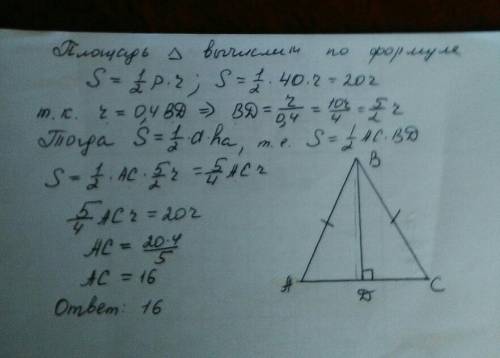 Площадь △ вычислим по формуле
S = 1/2 p · r ; S = 1/2 · 40 · r = 20r
т.к. r = 0,4 BD ⇒ BD = r/0,4 = 10r/4 = 5/2 r
Тогда S = 1/2 · a · ha, т.е. S = 1/2 AC · BD
S = 1/2 · AC · 5/2 r = 5/4 AC r
5/4 AC r = 20r
AC = 20·4/5
AC = 16
Ответ: 16
B
A
D
C